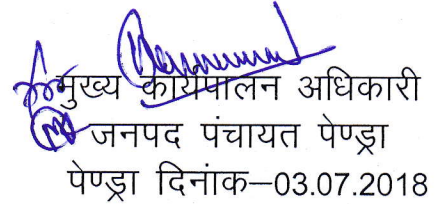 मुख्य कार्यपालन अधिकारी
जनपद पंचायत पेण्ड्रा
पेण्ड्रा दिनांक–03.07.2018